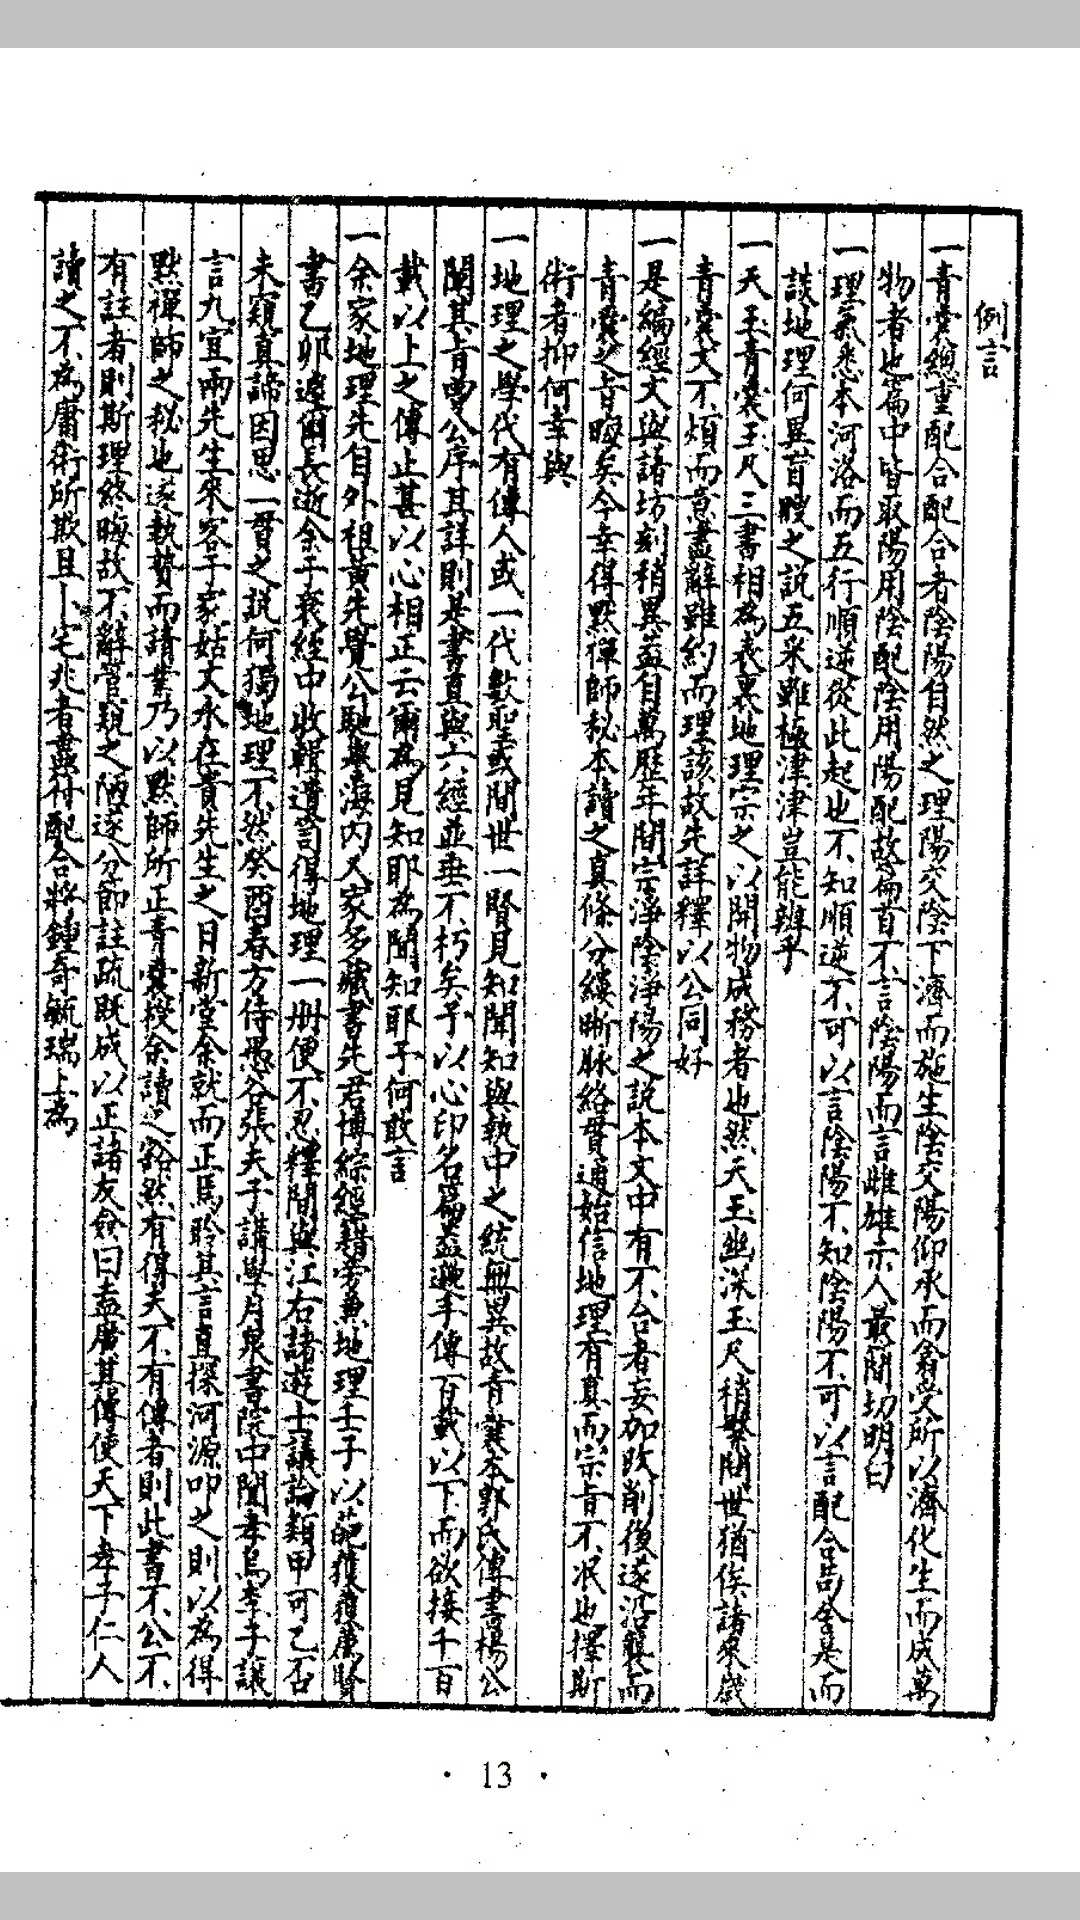 例言
一青囊總重配合配合者陰陽自然之理陽交陰下濟而施生陰交陽仰承而翕受所以濟化生而成萬
物者也篇中皆取陽用陰配陰用陽配故篇首不言陰陽而言雌雄示人最簡切明白
一理氣悉本河洛而五行順逆從此起也不知順逆不可以言陰陽不知陰陽不可以言配合苟舍是而
談地理何異盲瞍之說五采雖極津津豈能辨乎
一天玉青囊玉尺三書相為表裏地理宗之以開物成務者也然天玉幽深玉尺稍繁問世猶俟諸來歲
青囊文不煩而意盡辭雖約而理該故先詳釋以公同好
一是編經文與諸坊刻稍異蓋自萬歷年間宗淨陰淨陽之說本文中有不合者妄加改削後遂沿襲而
青囊之旨晦矣今幸得默禪師秘本讀之真條分縷晰脉絡貫通始信地理有真而宗旨不泯也擇斯
術者抑何幸與
一地理之學代有傳人或一代數聖或間世一賢見知聞知與執中之統無異故青囊本郭氏傳書楊公
闡其旨曾公序其詳則是書直與六經並垂不朽矣予以心印名篇蓋遡手傳百載以下而欲接千百
載以上之傳止甚以心相正云爾為見知耶為聞知耶予何敢言
一余家地理先自外祖黃先覺公馳與海內又家多藏書先君博綜經籍旁兼地理壬子以葩獲薦賢
書乙卯遽爾長逝余于衰絰中收輯遺笥得地理一冊便不忍釋間與江右諸遊士議論類甲可乙否
未窺真諦因思一貫之說何獨地理不然癸酉春方侍愚谷張夫子講學月泉書院中聞孝烏李子議
言九宣兩先生來客于家姑丈永在貴先生之日新堂余就而正焉聆其言直探河源叩之則以為得
默禪師之秘也遂執贄而請業乃以默師所正青囊授余讀之豁然有得夫不有傳者則此書不公不
有註者則斯理終晦故不辭管窺之陋遂分節註疏既成以正諸友僉曰盍廣其傳使天下孝子仁人
讀之不為庸術所欺且卜宅兆者盡符配合將鍾奇毓瑞上為
· 13 ·